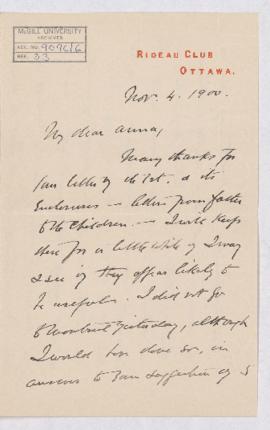 McGILL UNIVERSITY
ARCHIVES
ACC. NO. 909c/6
REF. 33
RIDEAU CLUB
OTTAWA.
Nov. 4. 1900.
My dear Anna,
Many thanks for
letter of the 1st. & its
enclosures — letters from father
to the children. — I will keep
for a little while if I may
& see if they are likely to
be useful. I did not go
to Montreal yesterday, although
I would have done so, in
answer to suggestion of